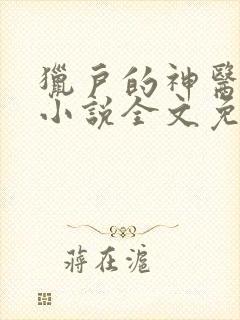 獵戶的神醫
小說全文免
蔣在滬